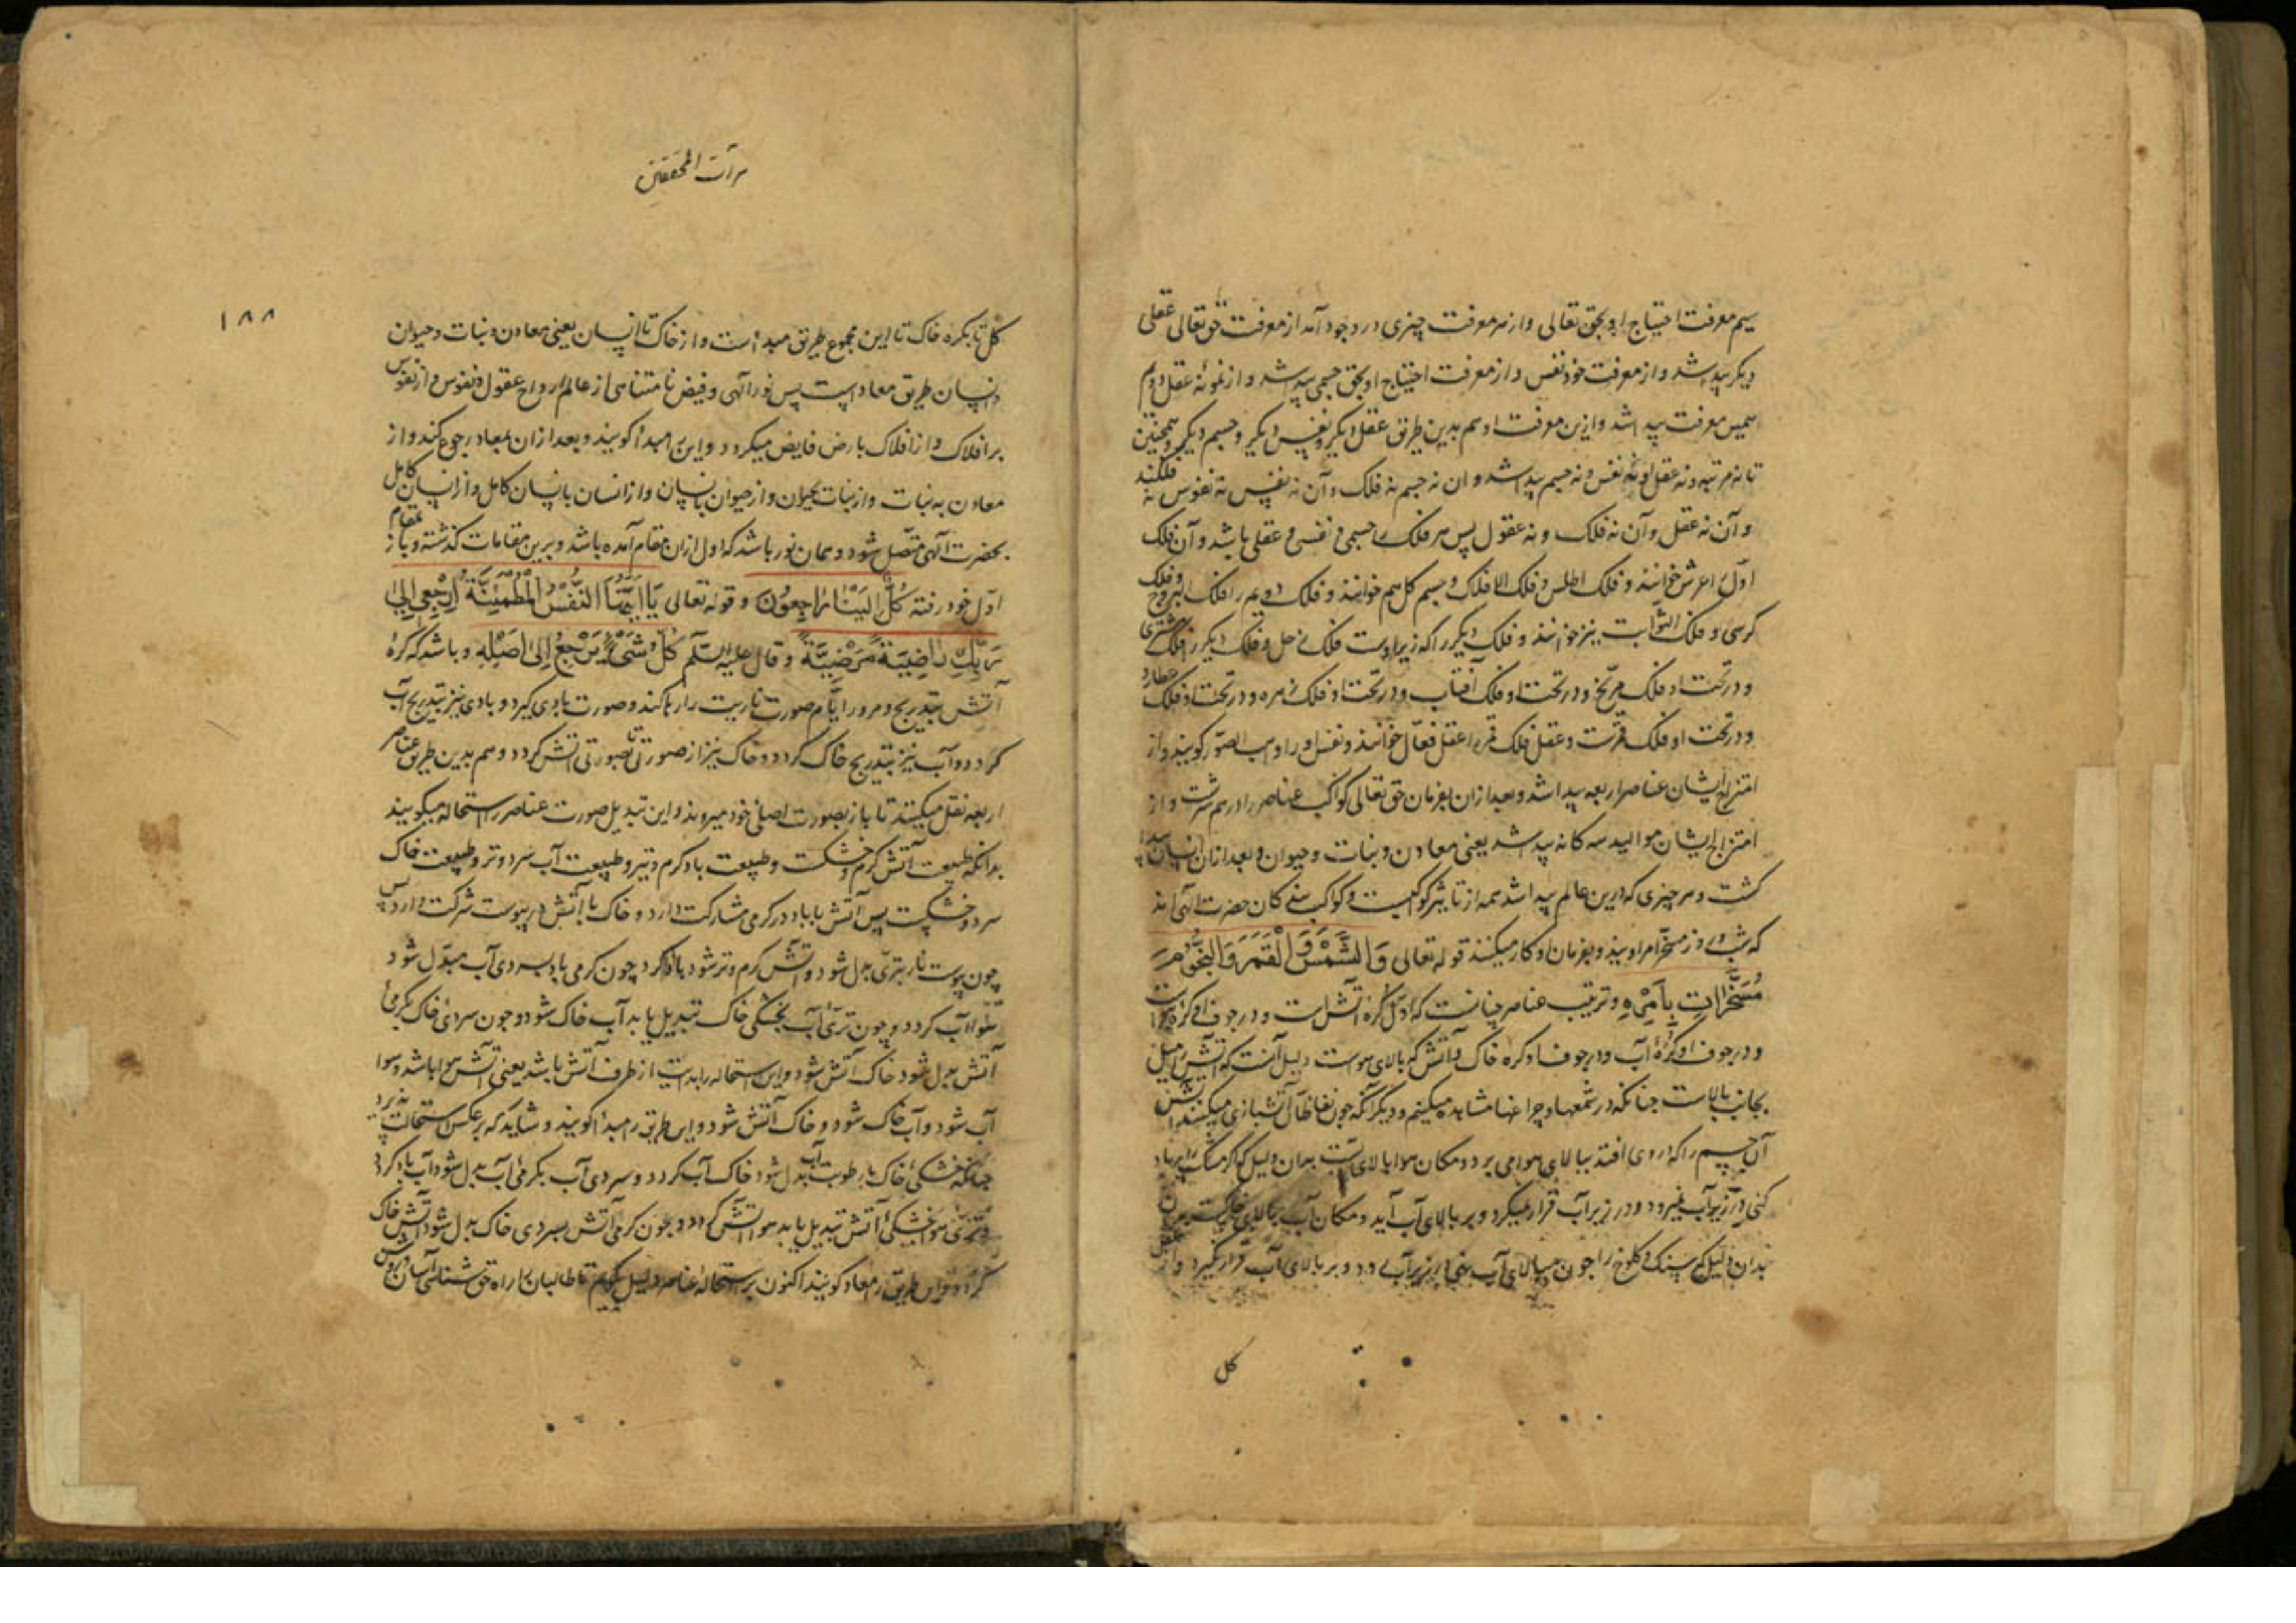 سیم معرفت احتیاج او بحق تعالی و از هر معرفت چیزی در وجود آمد از معرفت حق تعالی عقلی
دیگر پیدا شد و از معرفت خود نفس و از معرفت احتیاج او بحق جسمی پیدا شد و از عقل دوم
معرفت پیدا شد و ازین معرفت او هم بدین طریق عقل دیگر و نفس دیگر و جسم دیگر و همچنین
تا نه مرتبه و نه عقل و نه نفس و نه جسم پیدا شد و ان نه جسم نه فلک و آن نه نفس نه نفوس فلکند
و آن نه عقل و آن نه فلک و نه عقول پس هر فلک را جسمی و نفسی و عقلی باشد و آن فلک
اوّل را عرش خوانند و فلک اطلس و فلک الافلاک و جسم کل هم خوانند و فلک دویم را فلک البروج و فلک
کرسی و فلک الثوّابت نیز خوانند و فلک دیگر را که زیر اوست فلک زحل و فلک دیگر را فلک مشتری
و در تحت او فلک مرّیخ و در تحت او فلک آفتاب و در تحت او فلک زهره و در تحت او فلک عطارد
و در تحت او فلک قمرست و عقل فلک قمر را عقل فعّال خوانند و نفس او را واهب الصّور کویند و از
امتزاج ایشان عناصر اربعه پیدا شد و بعد ازان بفرمان حق تعالی کواکب عناصر را در هم سرشت و از
امتزاج ایشان موالید سه کانه پیدا شد یعنی معادن و نبات و حیوان و بعد ازان انسان پیدا
کشت و هر چیزی که درین عالم پیدا شد همه از تاثیر کواکبست و کواکب حضرت الهی اند
که شب و روز مسخّر امر اویند و بفرمان او کار میکنند قوله تعالی وَالشَّمْسَ وَالْقَمَرَ وَالنُّجُومَ
مُسَخَّرَاتٍ بِأَمْرِهِ و ترتیب عناصر چنانست که اوّل کره آتش است و در جوف او کره هواست
و در جوف او کرهٔ آب و در جوف او کره خاک و آتش که بالای هواست دلیل آنست که آتش را میل
بجانب بالاست چنانکه در شمعها و چراغها مشاهده میکنیم و دیگر آنکه چون نفاظان آتشبازی میکنند آتش
آن جسم را که دروی افتد ببالای هوا می برد و مکان هوا بالای آبست بدان دلیل که اگر مشک را پر باد
کنی در زیر آب نمیرود و در زیر آب قرار نمیکرد و بر بالای آب آید و مکان آب بالای خاکست
بدان دلیل که سنک و کلوخ را چون ببالای آب بنهی در زیر آب رود و بر بالای آب قرار نکیرد و از
کل
مرآت المحققین
۱۸۸
کل تا بکره خاک تا این مجموع طریق مبدأست و از خاک تا انسان یعنی معادن و نبات و حیوان
و انسان طریق معادست پس نور الهی و فیض نامتناهی از عالم ارواح عقول و نفوس و از نفوس
بر افلاک و از افلاک بارض فایض میکردد و این را مبدأ کویند و بعد ازان بمعاد رجوع کند و از
معادن به نبات و از نبات بحیوان و از حیوان بانسان و از انسان بانسان کامل و از انسان کامل
بحضرت الهی متصّل شود و همان نور باشد که اول ازان مقام آمده باشد و برین مقامات کذشته و باز بمقام
اوّل خود رفته كُلٌّ إِلَيْنَا رَاجِعُونَ و قوله تعالی يَا أَيَّتُهَا النَّفْسُ الْمُطْمَئِنَّةُ ارْجِعِي إِلَى
رَبِّكِ رَاضِيَةً مَرْضِيَّةً و قال علیه السّلم كُلُّ شَيْءٍ يَرْجِعُ إِلَى أَصْلِهِ و باشد که کرهٔ
آتش بتدریج و مرور ایّام صورت ناریت را رها کند و صورت بادی کیرد و بادی نیز بتدریج آب
کردد و آب نیز بتدریج خاک کردد و خاک نیز از صورتی تا بصورتی آتش کردد و هم بدین طریق عناصر
اربعه نقل میکنند تا باز بصورت اصلیٔ خود میروند و این تبدیل صورت عناصر را استحاله میکویند
بدانکه طبیعت آتش کرم و خشکست و طبیعت باد کرم و تر و طبیعت آب سرد و تر و طبیعت خاک
سرد و خشکست پس آتش با باد در کرمی مشارکت دارد و خاک با آتش در یبوست شرکت دارد پس
چون یبوست نار بتری بدل شود و آتش کرم و تر شود باد کردد چون کرمی باد بسردی آب مبدّل شود
هوا آب کردد و چون تریٔ آب بخشکی خاک تبدیل یابد آب خاک شود و چون سردیٔ خاک بکرمیٔ
آتش بدل شود خاک آتش شود و این استحاله را بدایت از طرف آتش باشد یعنی آتش هوا باشد و هوا
آب شود و آب خاک شود و خاک آتش شود و این طریق را مبدأ کویند و شاید که بر عکس استحالت پذیرد
چنانکه خشکیٔ خاک برطوبت آب بدل شود خاک آب کردد و سردی آب بکرمیٔ بدل شود آب باد کردد
و تریٔ هوا بخشکیٔ آتش تبدیل یابد هوا آتش کردد و چون کرمی آتش بسردی خاک بدل شود آتش خاک
کردد و این طریق را معاد کویند اکنون بر استحالهٔ عناصر دلیل کوییم تا طالبان را راه حق شناسی آسان و روشن